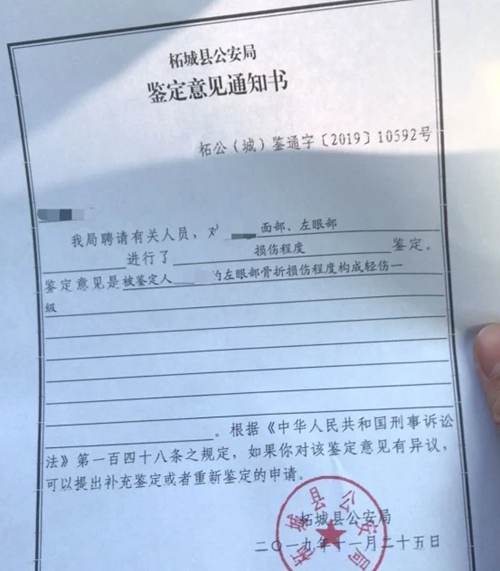 柘城县公安局
鉴定意见通知书
柘公(城)鉴通字〔2019〕10592号
我局聘请有关人员,对 面部、左眼部
进行了 损伤程度 鉴定。
鉴定意见是被鉴定人 的左眼部骨折损伤程度构成轻伤一
级
。根据《中华人民共和国刑事诉讼
法》第一百四十八条之规定,如果你对该鉴定意见有异议,
可以提出补充鉴定或者重新鉴定的申请。
柘城县公安局
二〇一九年十一月二十五日
柘城县公安局